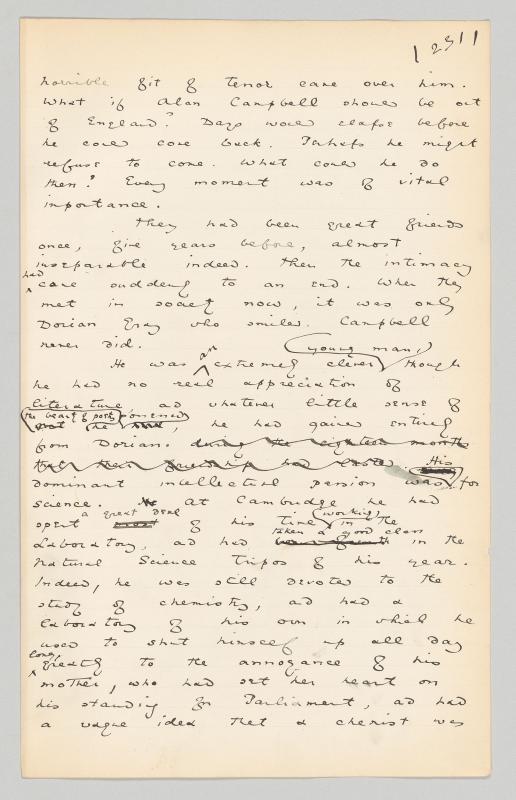 231
horrible fit of terror came over him.
What if Alan Campbell should be out
of England? Days would elapse before
he could come back. Perhaps he might
refuse to come. What could he do
then? Every moment was of vital
importance.
They had been great friends
once, five years before, almost
inseparable indeed. Then the intimacy
had
came suddenly to an end. When they
met in society now, it was only
Dorian Gray who smiled. Campbell
never did.
young man,
He was an extremely clever though
he had no real appreciation of
literature, and whatever little sense of
the beauty of poetry possessed
he had, he had gained entirely
from Dorian. during the eighteen months
that their friendship had lasted. His
dominant intellectual passion was for
science. At Cambridge he had
a great deal working
spent most of his time in the
taken a good class
Laboratory, and had in the
Natural Science Tripos of his year.
Indeed, he was still devoted to the
study of chemistry, and had a
laboratory of his own in which he
used to shut himself up all day
long,
greatly to the annoyance of his
mother, who had set her heart on
his standing for Parliament, and had
a vague idea that a chemist was